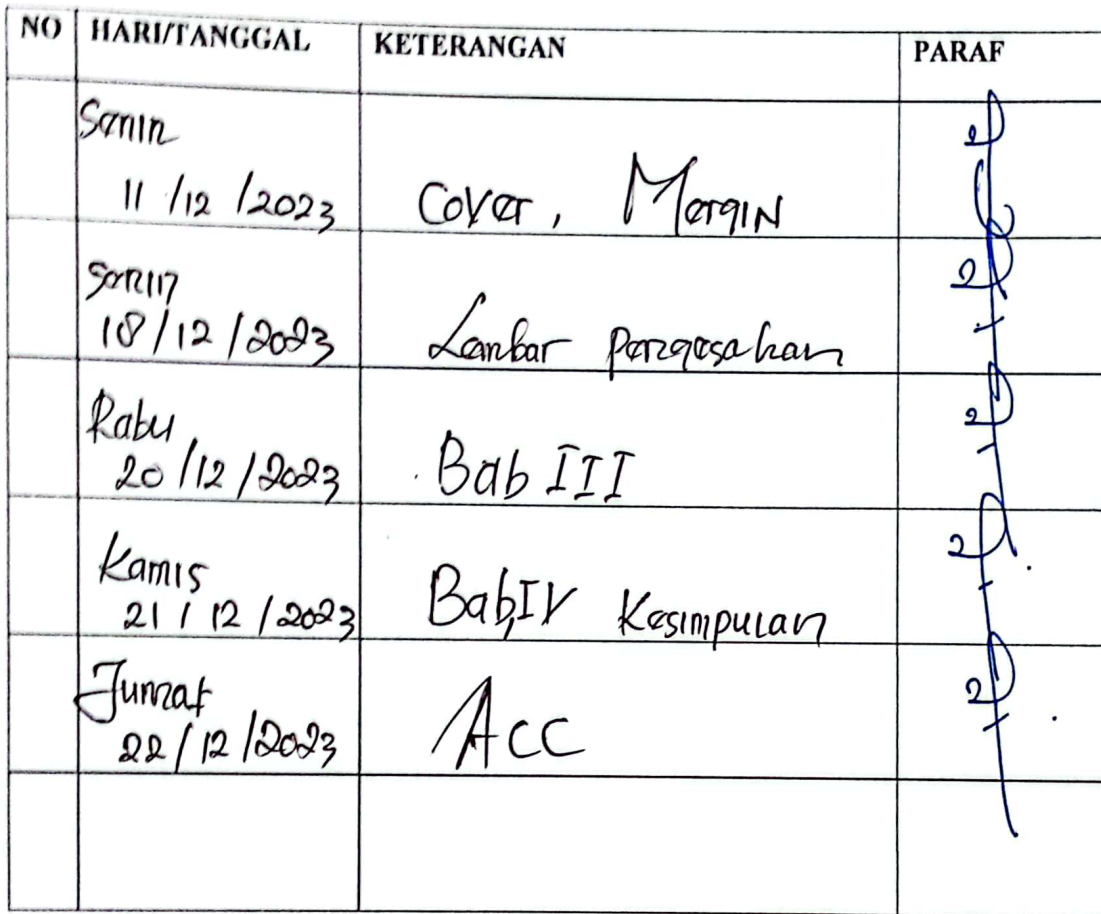 NO HARI/TANGGAL KETERANGAN PARAF
Senin
11/12/2023 Cover, Mergin
Senin
18/12/2023 Lembar Pengesahan
Rabu
20/12/2023 Bab III
Kamis
21/12/2023 Bab, IV Kesimpulan
Jumat
22/12/2023 Acc